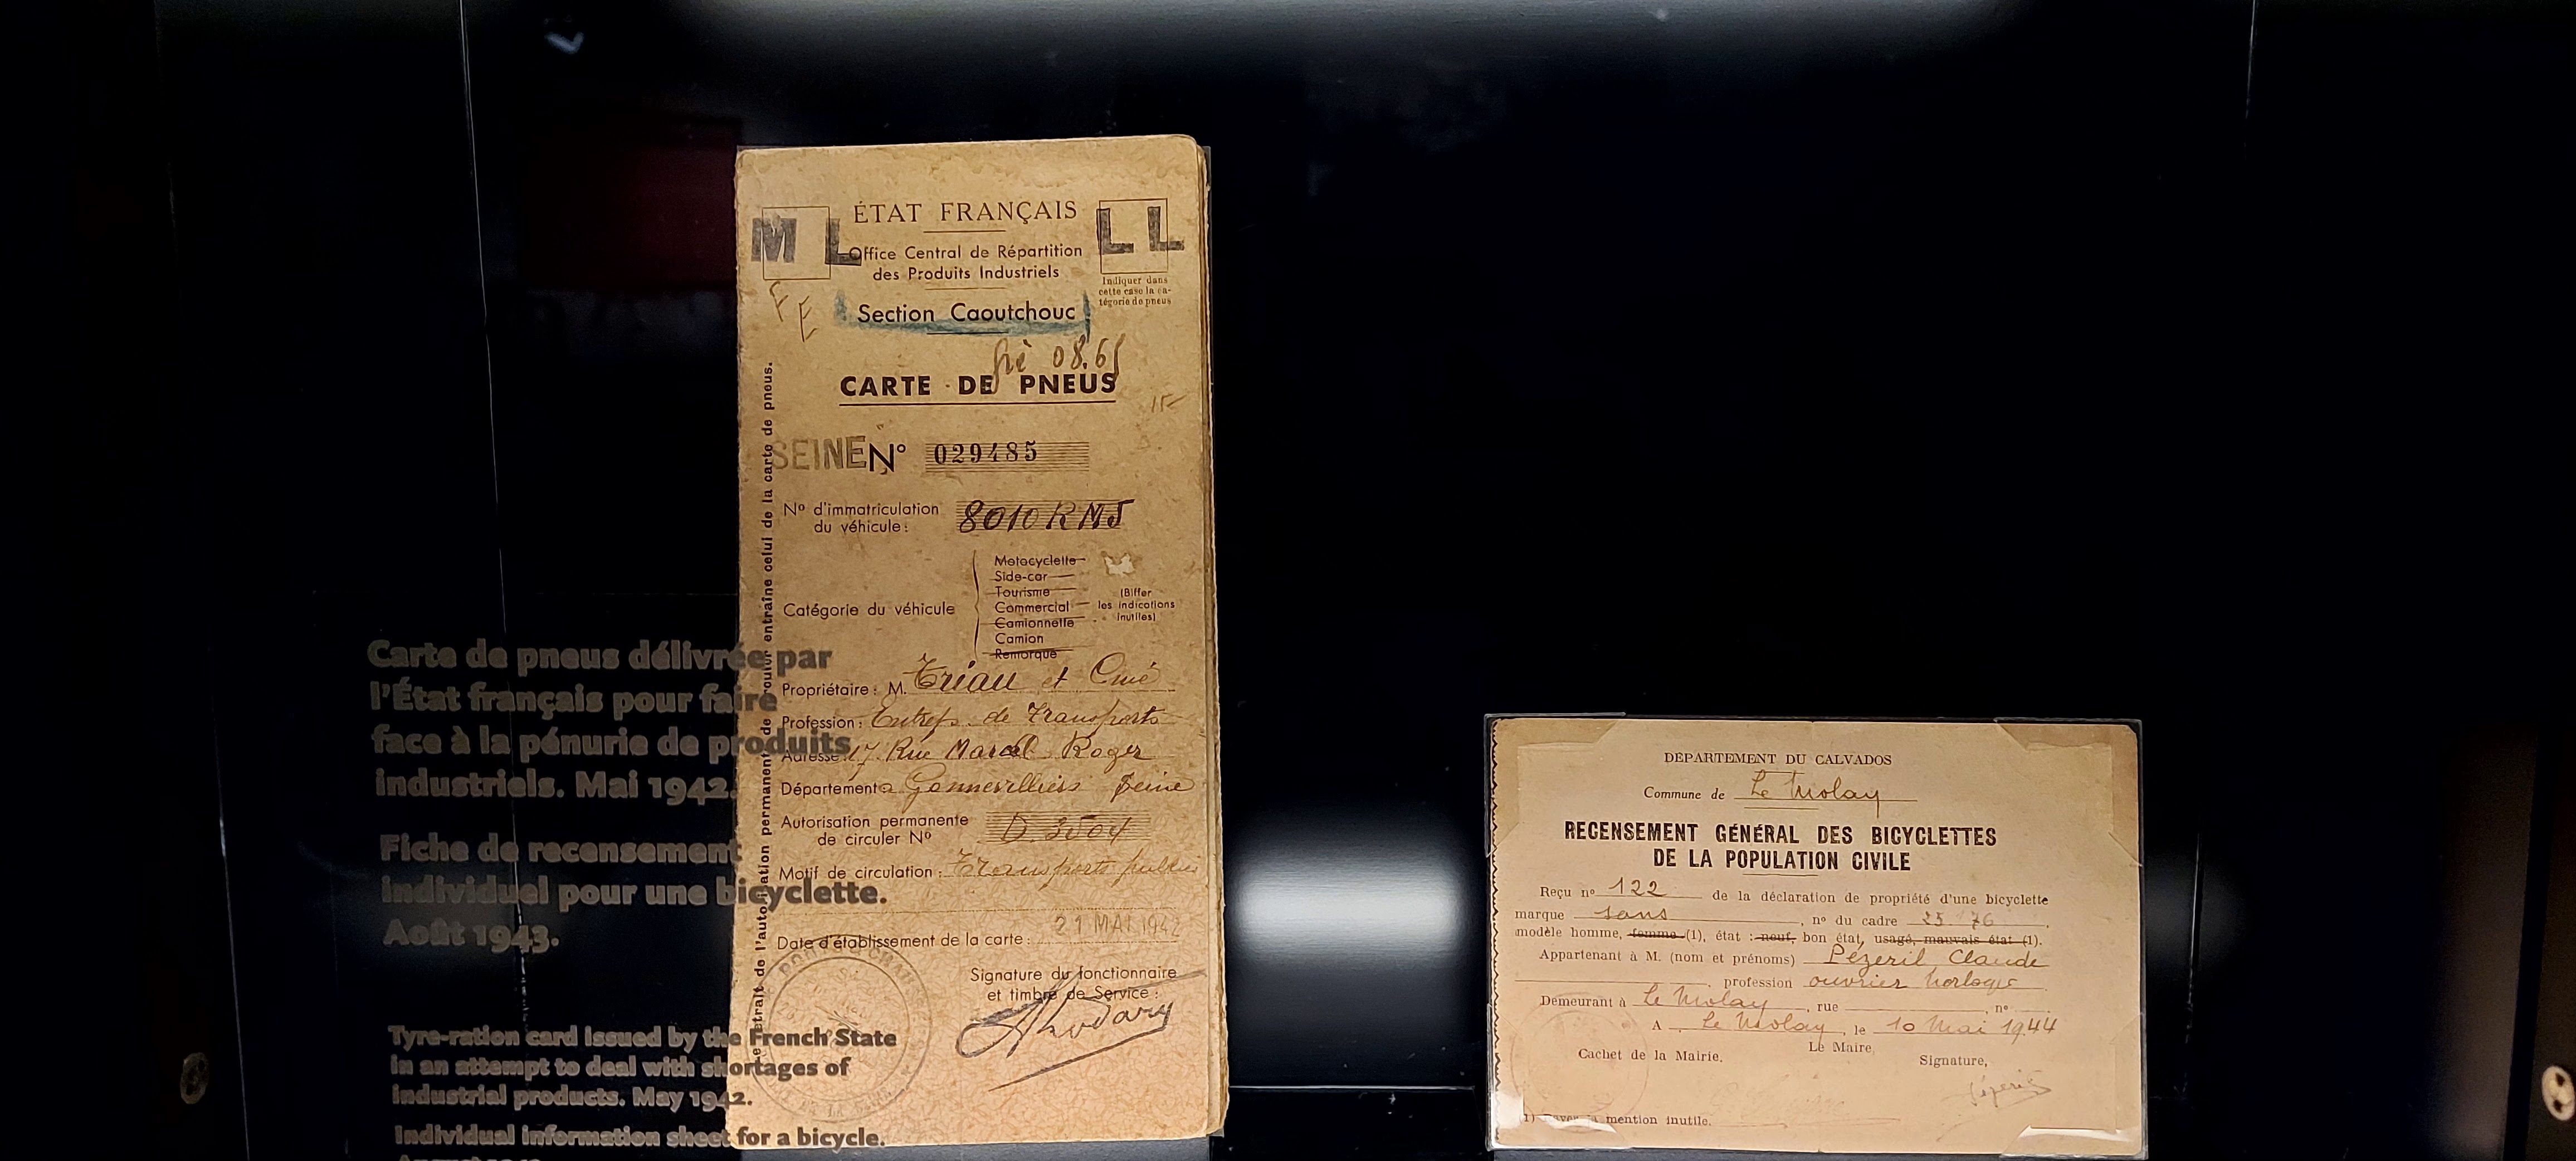 ÉTAT FRANÇAIS
M L
L L
Office Central de Répartition
des Produits Industriels
Indiquer dans
cette case la ca-
tégorie de pneus
F E
Section Caoutchouc
08.65
CARTE DE PNEUS
SEINE N° 029485
N° d'immatriculation
du véhicule: 8010 RM5
Catégorie du véhicule
Motocyclette
Side-car
Tourisme
Commercial
Camionnette
Camion
Remorque
(Biffer
les indications
inutiles)
Propriétaire: M. Triau et
Profession: Entrep. de Transports
Adresse: 17 Rue Marcel Roger
Département Gennevilliers Seine
Autorisation permanente
de circuler N° D. 3504
Motif de circulation: Transports publics
Date d'établissement de la carte: 21 MAI 1942
Signature du fonctionnaire
et timbre de Service:
Le retrait de l'autorisation permanente de rouler entraîne celui de la carte de pneus.
Carte de pneus délivrée par
l'État français pour faire
face à la pénurie de produits
industriels. Mai 1942.
Fiche de recensement
individuel pour une bicyclette.
Août 1943.
Tyre-ration card issued by the French State
in an attempt to deal with shortages of
industrial products. May 1942.
Individual information sheet for a bicycle.
DÉPARTEMENT DU CALVADOS
Commune de Le Molay
RECENSEMENT GÉNÉRAL DES BICYCLETTES
DE LA POPULATION CIVILE
Reçu n° 122 de la déclaration de propriété d'une bicyclette
marque sans, n° du cadre 25 76
modèle homme, femme (1), état: neuf, bon état, usagé, mauvais état (1).
Appartenant à M. (nom et prénoms) Pézeril Claude
, profession ouvrier horloger
Demeurant à Le Molay, rue , n°
A Le Molay, le 10 Mai 1944
Cachet de la Mairie.
Le Maire
Signature,
(1) Rayer la mention inutile.